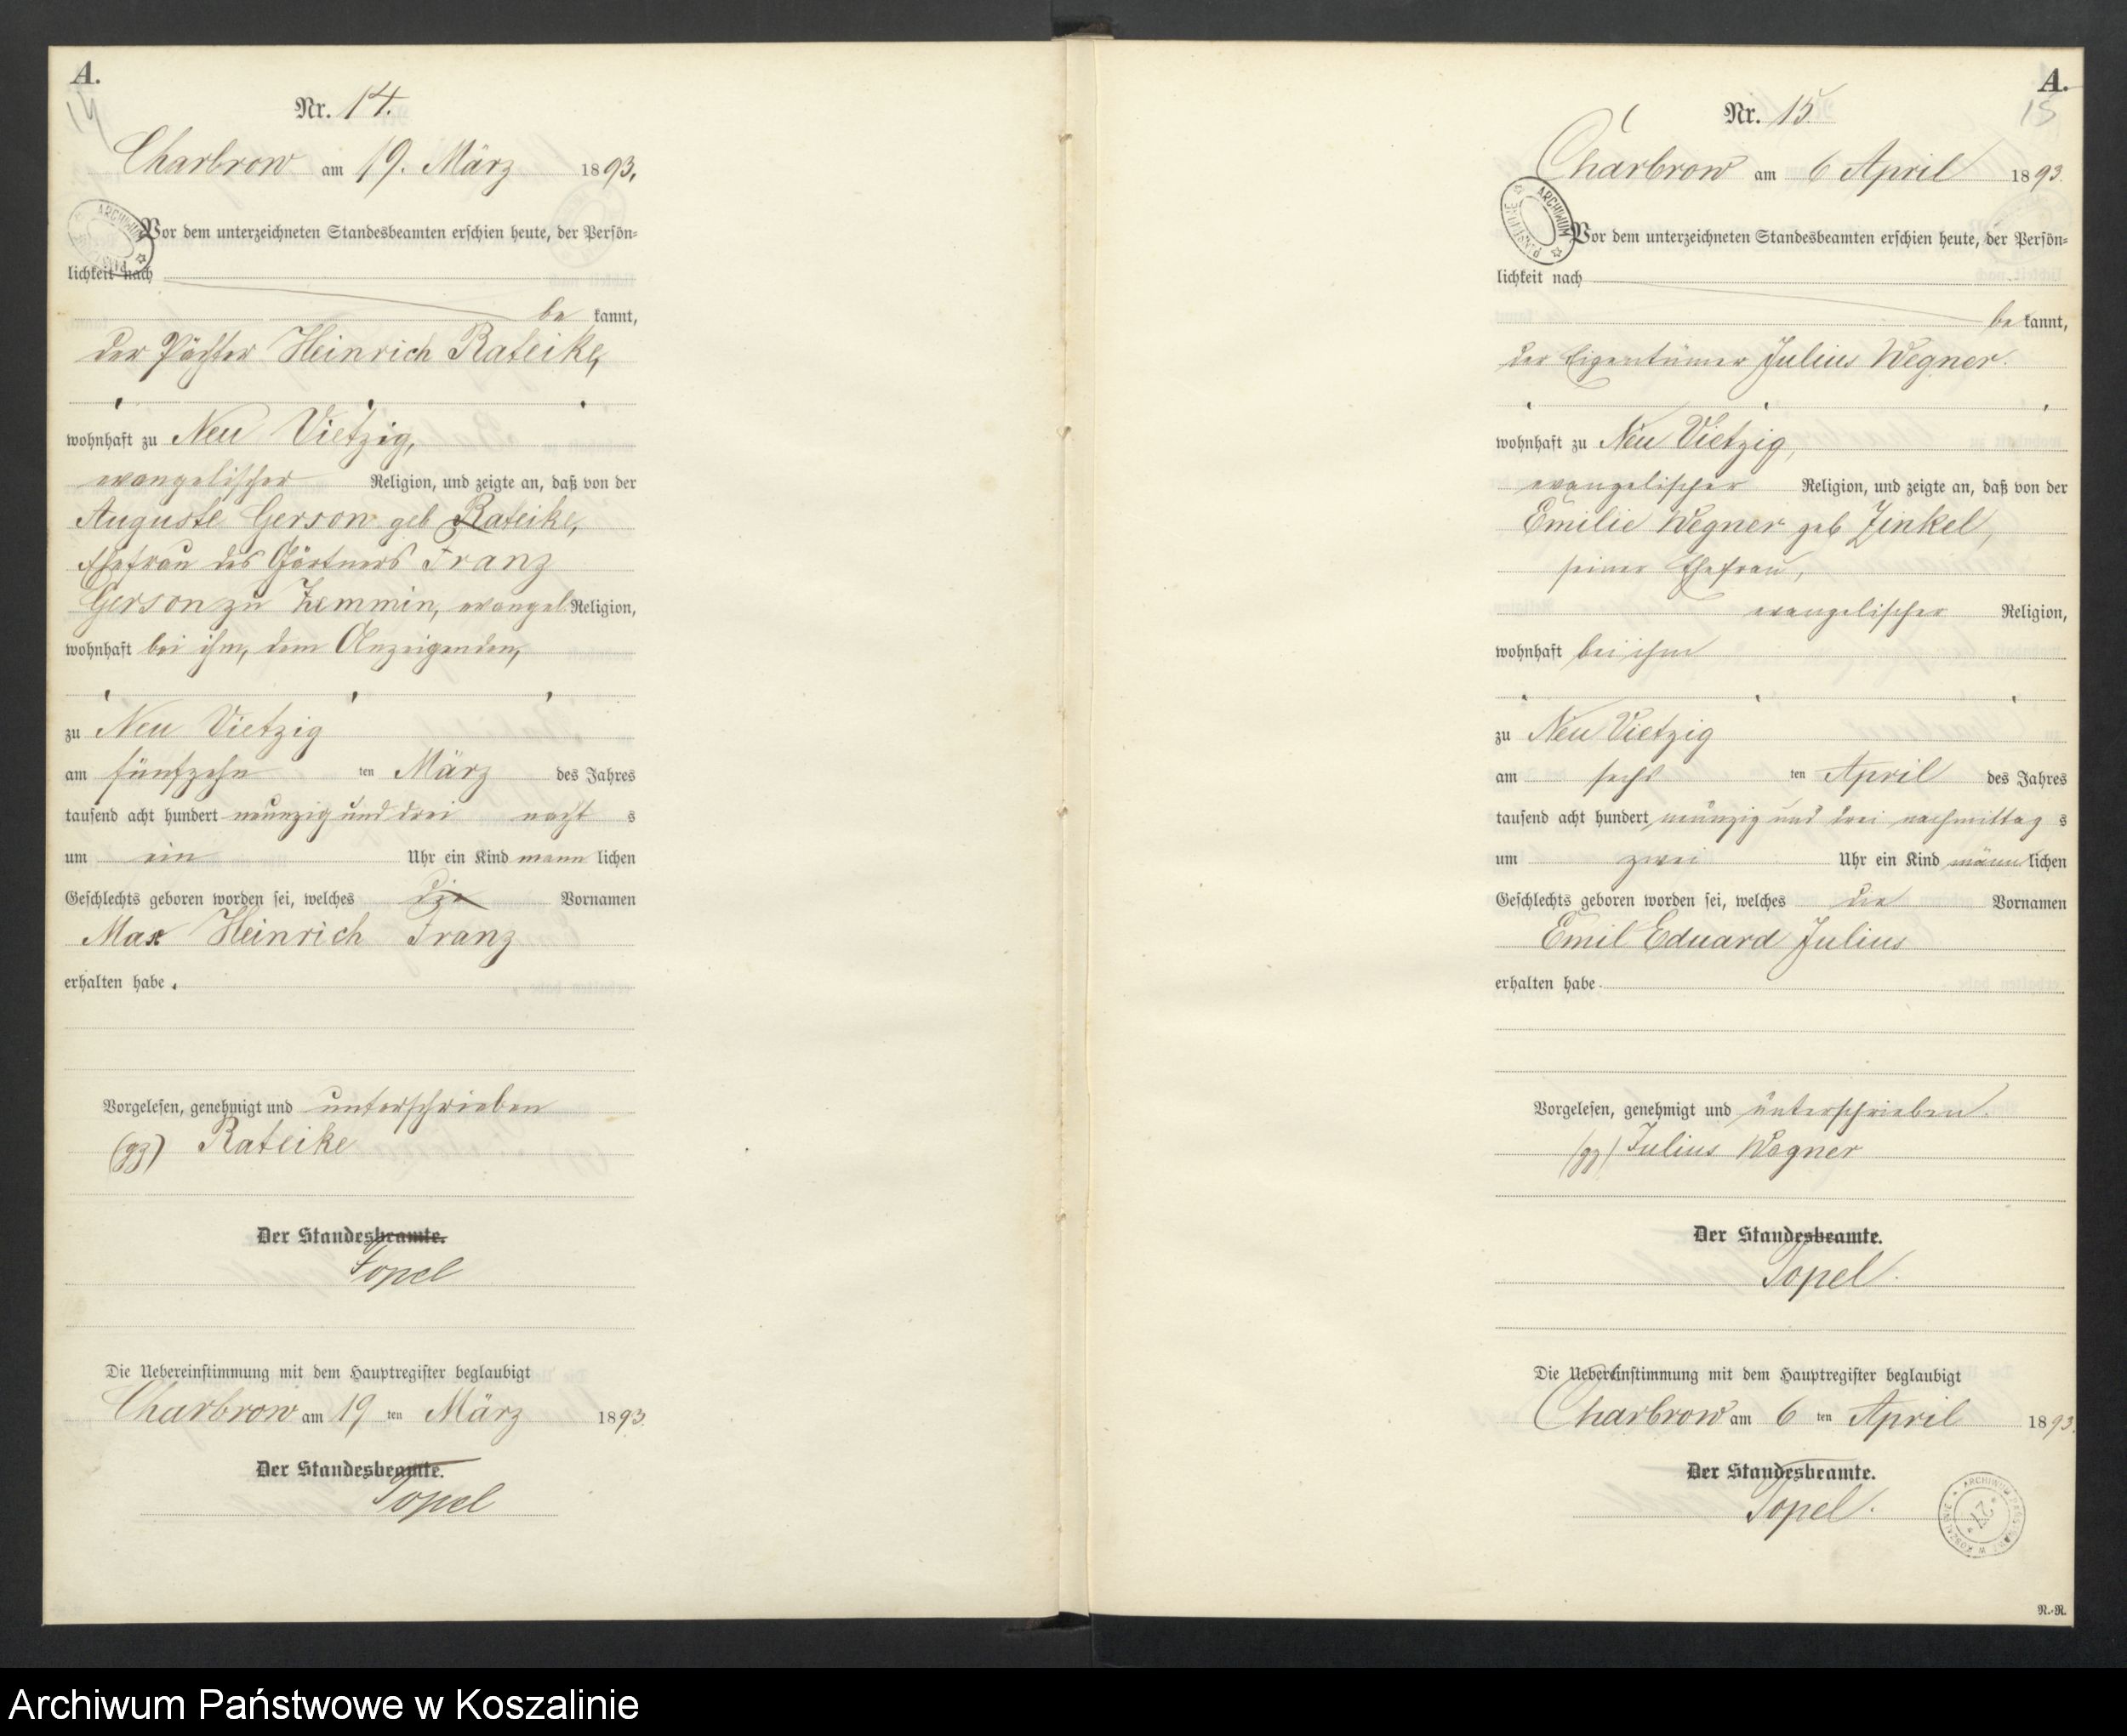 A.
14
Nr. 14.
Charbrow am 19. März 1893.
Vor dem unterzeichneten Standesbeamten erschien heute, der Persön-
lichkeit nach
be kannt,
der Pächter Heinrich Rateike,
wohnhaft zu Neu Vietzig,
evangelischer Religion, und zeigte an, daß von der
Auguste Gerson geb Rateike,
Ehefrau des Gärtners Franz
Gerson zu Zemmin, evangel. Religion,
wohnhaft bei ihm, dem Anzeigenden,
zu Neu Vietzig
am fünfzehn ten März des Jahres
tausend acht hundert neunzig und drei nacht s
um ein Uhr ein Kind männ lichen
Geschlechts geboren worden sei, welches die Vornamen
Max Heinrich Franz
erhalten habe.
Vorgelesen, genehmigt und unterschrieben
(gz) Rateike
Der Standesbeamte.
Topel
Die Uebereinstimmung mit dem Hauptregister beglaubigt
Charbrow am 19 ten März 1893.
Der Standesbeamte.
Topel
A.
15
Nr. 15.
Charbrow am 6 April 1893.
ARCHIWUM
Vor dem unterzeichneten Standesbeamten erschien heute, der Persön-
lichkeit nach
be kannt,
der Eigentümer Julius Wegner.
wohnhaft zu Neu Vietzig,
evangelischer Religion, und zeigte an, daß von der
Emilie Wegner geb Zinkel,
seiner Ehefrau,
evangelischer Religion,
wohnhaft bei ihm
zu Neu Vietzig
am sechs ten April des Jahres
tausend acht hundert neunzig und drei nachmittag s
um zwei Uhr ein Kind männ lichen
Geschlechts geboren worden sei, welches die Vornamen
Emil Eduard Julius
erhalten habe.
Vorgelesen, genehmigt und unterschrieben.
(gz) Julius Wegner
Der Standesbeamte.
Topel.
Die Uebereinstimmung mit dem Hauptregister beglaubigt
Charbrow am 6 ten April 1893.
Der Standesbeamte.
Topel.
N.-R.
Archiwum Państwowe w Koszalinie